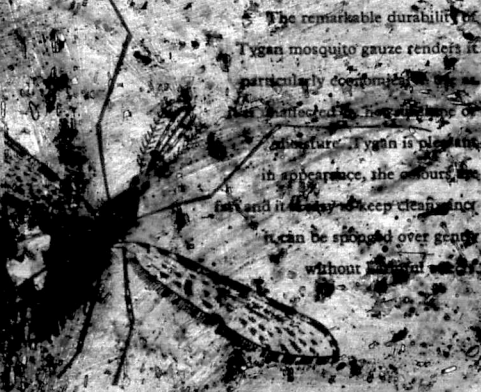 The remarkable durability of
Tygan mosquito gauze renders it
particularly economical
unaffected
moisture. Tygan is pleasant
in appearance, the colours are
fast and it is easy to keep clean since
it can be sponged over gently
without harmful effects.